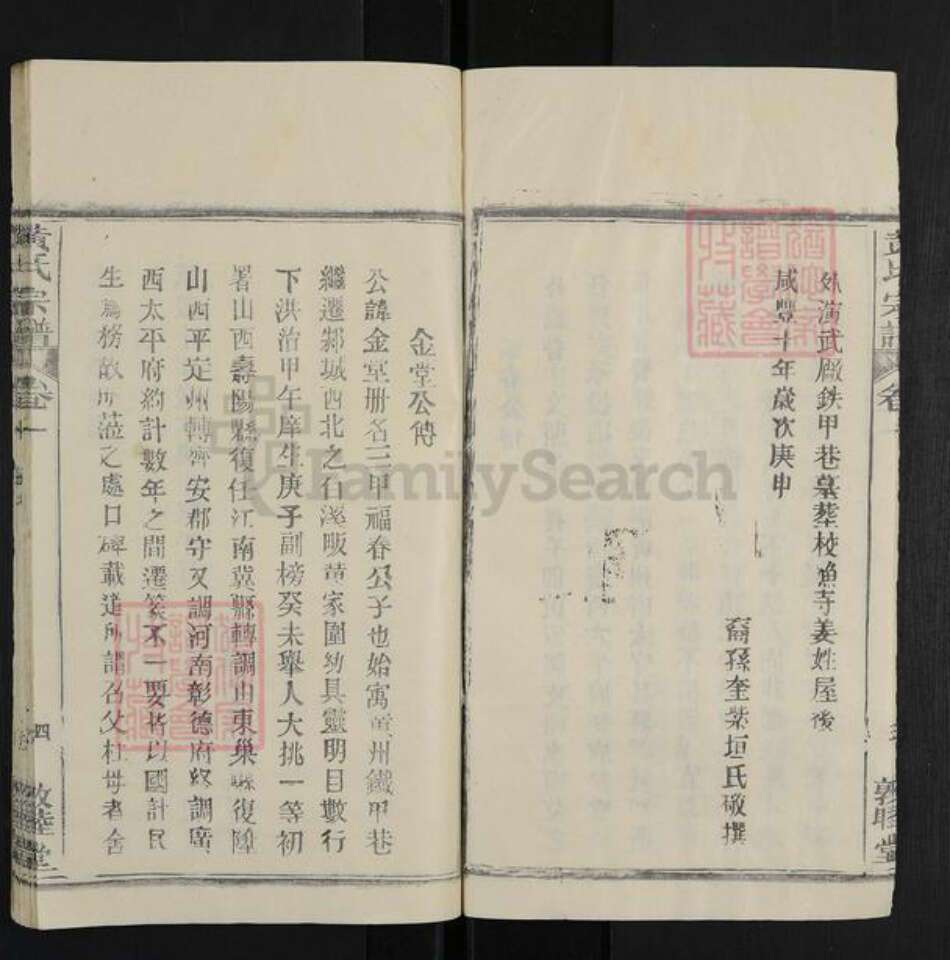 外演武廠鉄甲巷墓葬校漁寺姜姓屋後
咸豐十年歲次庚申
裔孫奎紫垣氏敬撰
敦睦堂
金堂公傳
公諱金堂册名三甲福春公子也始寓黃州鐵甲巷
繼遷邾城西北之石溪畈黃家圍幼具靈明目數行
下洪治甲午庠生庚子副榜癸未舉人大挑一等初
署山西壽陽縣復任江南冀縣轉調山東巢縣復陞
山西平定州轉齊安郡守又調河南彰德府終調廣
西太平府約計數年之間遷篆不一要皆以國計民
生為務故所蒞之處口碑載道所謂召父杜母者舍
黃氏宗譜
卷一
四
敦睦堂
FamilySearch